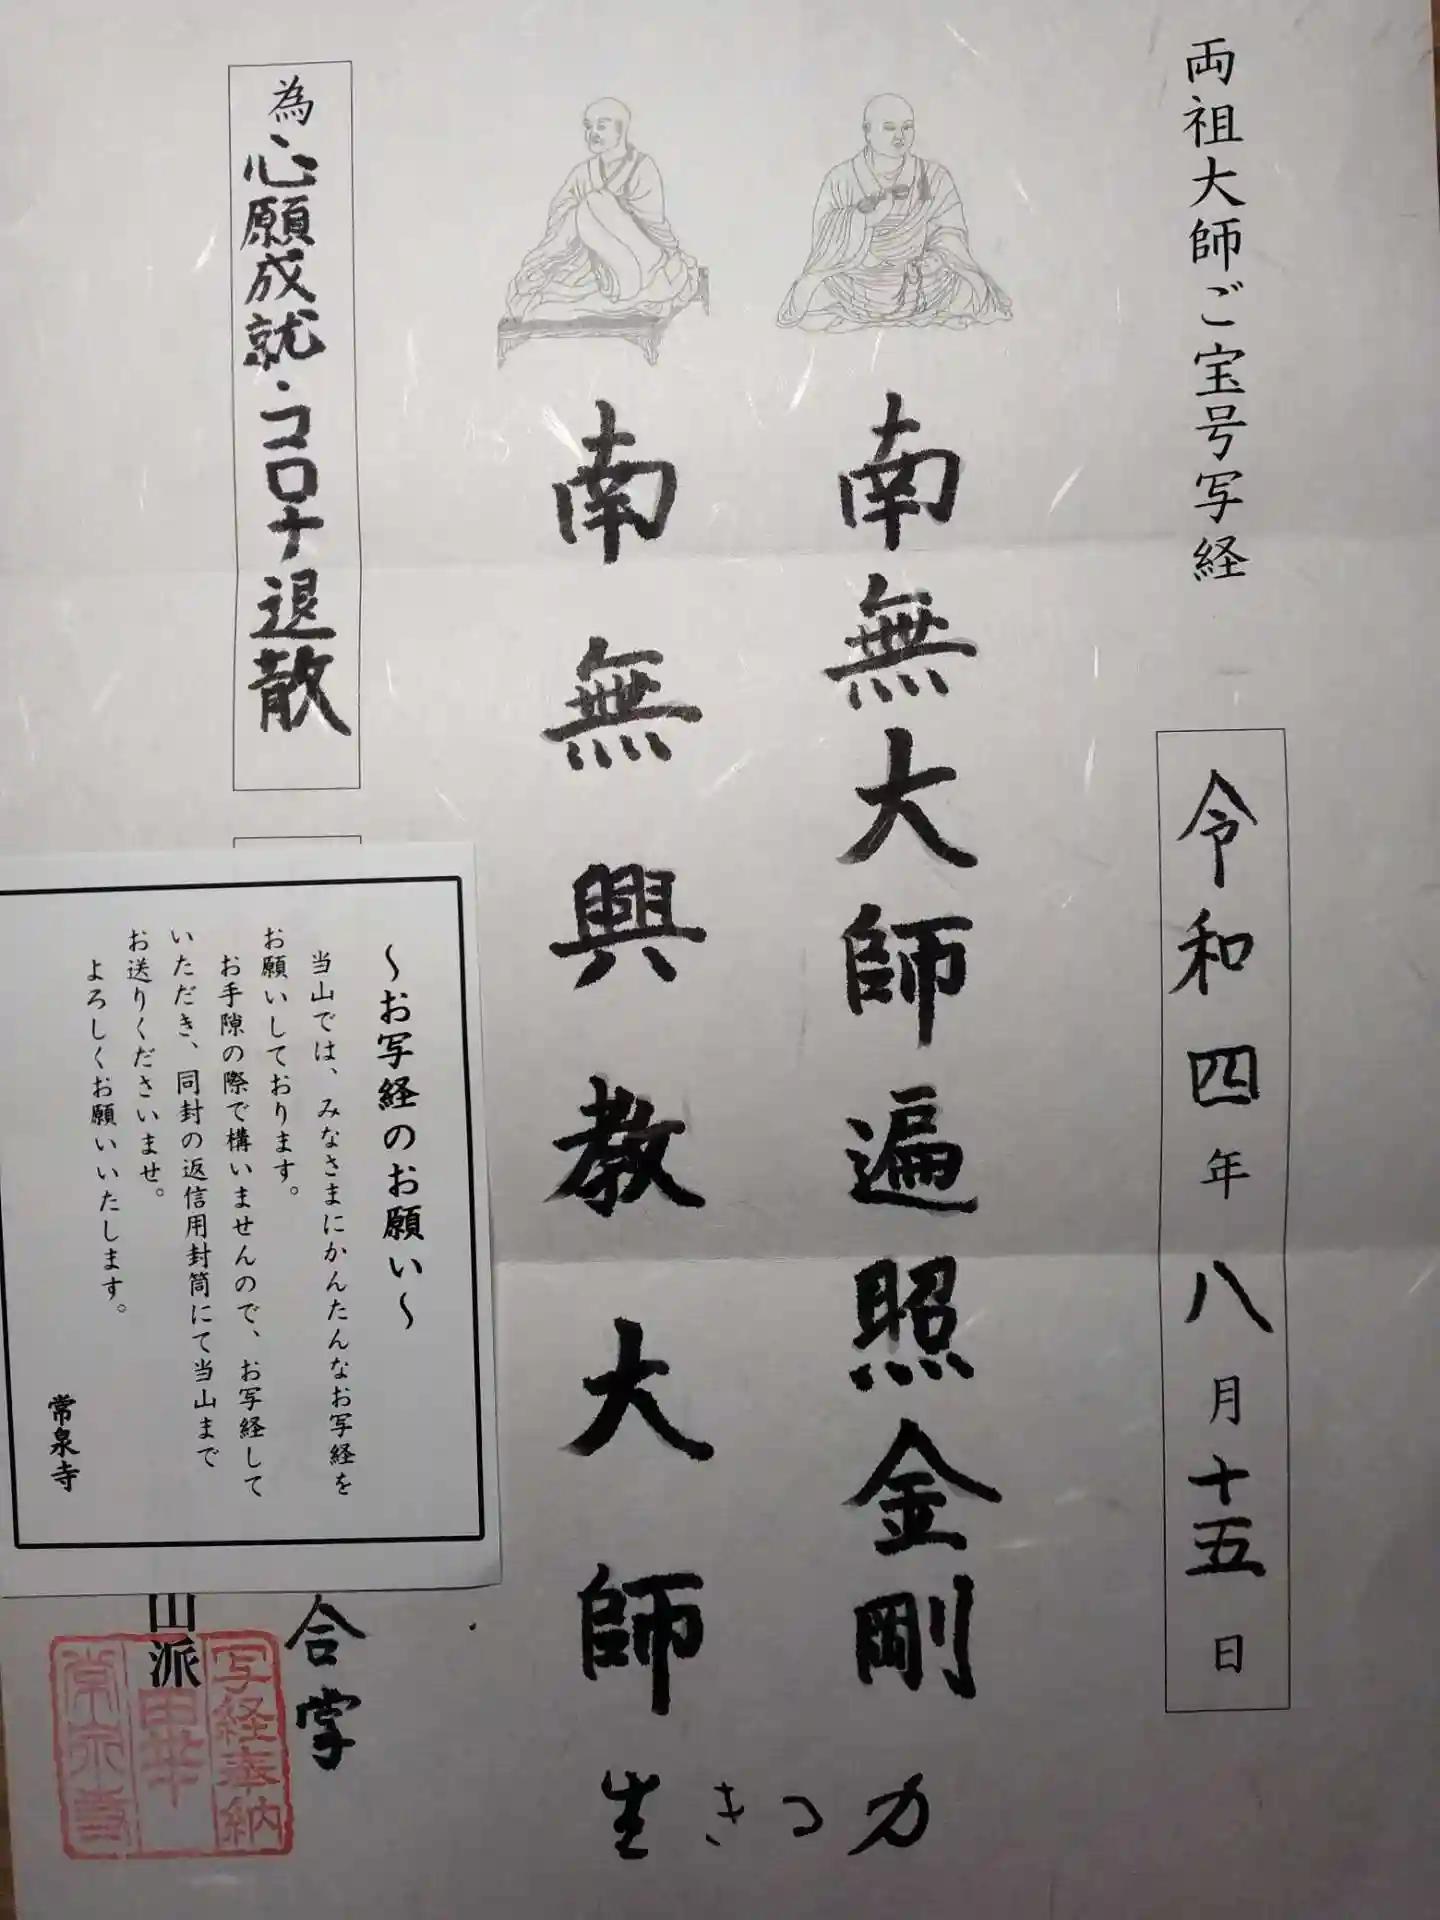 両祖大師ご宝号写経
令和四年八月十五日
南無大師遍照金剛
南無興教大師
生きる力
為心願成就・コロナ退散
合掌
山派
写経奉納
〜お写経のお願い〜
当山では、みなさまにかんたんなお写経を
お願いしております。
お手隙の際で構いませんので、お写経して
いただき、同封の返信用封筒にて当山まで
お送りくださいませ。
よろしくお願いいたします。
常泉寺